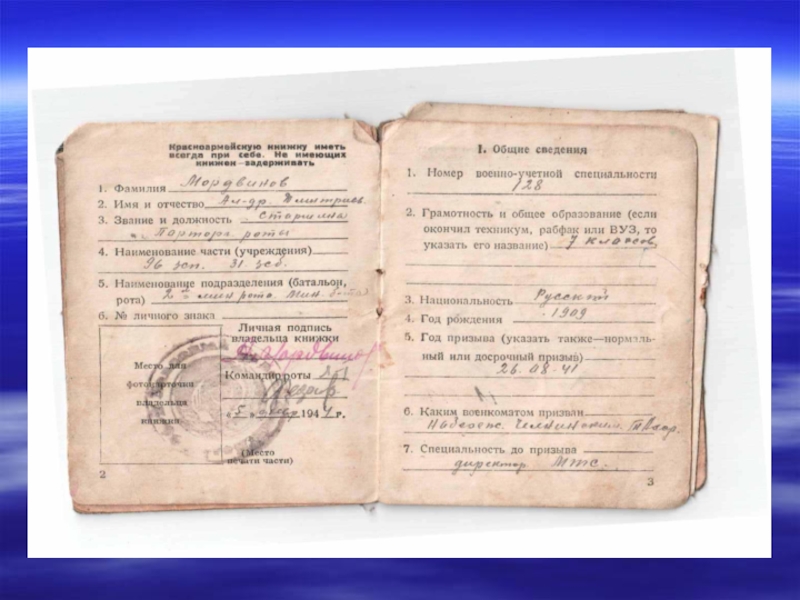 Красноармейскую книжку иметь
всегда при себе. Не имеющих
книжек—задерживать
1. Фамилия Мордвинов
2. Имя и отчество Ал-др. Дмитриев.
3. Звание и должность Старшина
Парторг роты
4. Наименование части (учреждения)
96 зсп. 31 зсб.
5. Наименование подразделения (батальон,
рота) 2 мин рота. мин. бата
6. № личного знака
Место для
фотокарточки
владельца
книжки
Личная подпись
владельца книжки
Мордвинов
Командир роты
194 г.
(Место
печати части)
2
I. Общие сведения
1. Номер военно-учетной специальности
128
2. Грамотность и общее образование (если
окончил техникум, рабфак или ВУЗ, то
указать его название) 7 классов
3. Национальность Русский
4. Год рождения 1909
5. Год призыва (указать также—нормаль-
ный или досрочный призыв)
26.08.41
6. Каким военкоматом призван
Челнинским
7. Специальность до призыва
директор МТС.
3